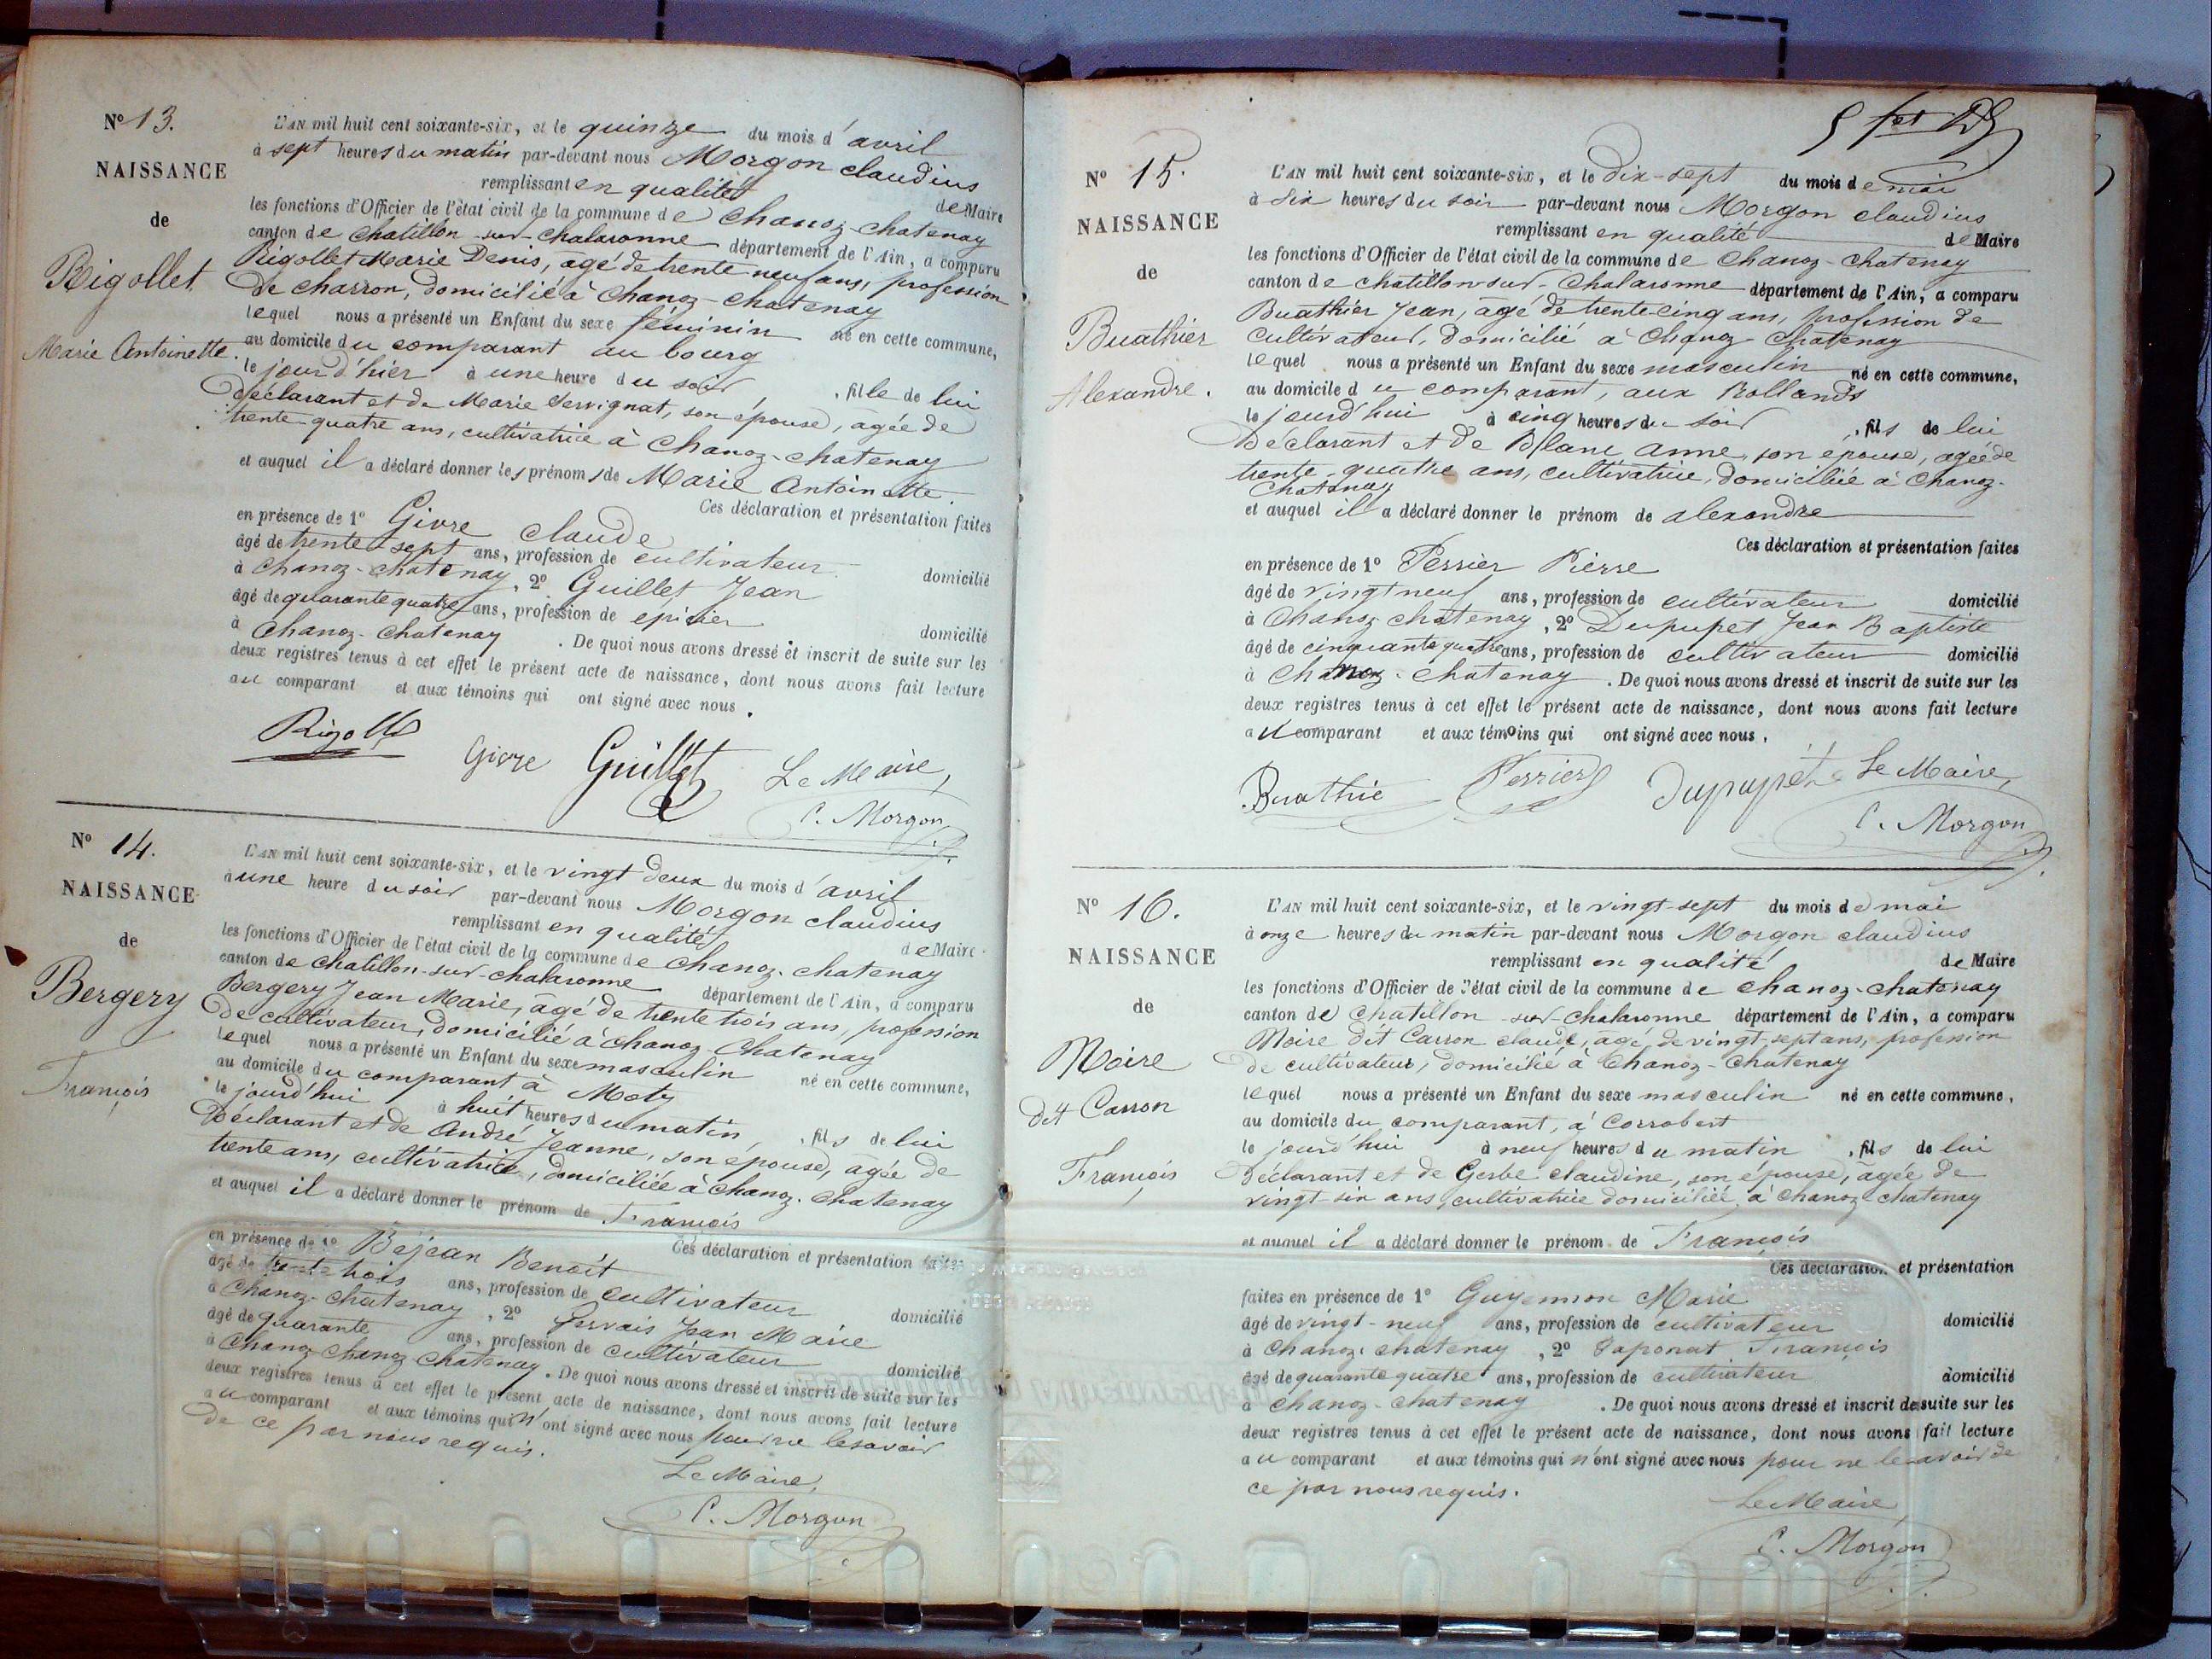 Nº 13.
NAISSANCE
de
Rigollet
Marie Antoinette.
L'AN mil huit cent soixante-six, et le quinze du mois d'avril
à sept heures du matin par-devant nous Morgon claudius
remplissant en qualité de Maire
les fonctions d'Officier de l'état civil de la commune de Chanoz-chatenay
canton de Chatillon-sur-chalaronne département de l'Ain, a comparu
Rigollet Marie Denis, agé de trente neuf ans, profession
de charron, domicilié à Chanoz-chatenay
lequel nous a présenté un Enfant du sexe féminin né en cette commune,
au domicile du comparant au bourg
le jour d'hier à une heure du soir, fille de lui
déclarant et de Marie Servignat, son épouse, agée de
trente-quatre ans, cultivatrice à Chanoz-chatenay
et auquel il a déclaré donner les prénoms de Marie Antoinette.
Ces déclaration et présentation faites
en présence de 1º Givre claude
âgé de trente-sept ans, profession de cultivateur domicilié
à Chanoz-chatenay, 2º Guillet Jean
âgé de quarante quatre ans, profession de épicier domicilié
à Chanoz-Chatenay. De quoi nous avons dressé et inscrit de suite sur les
deux registres tenus à cet effet le présent acte de naissance, dont nous avons fait lecture
au comparant et aux témoins qui ont signé avec nous.
Rigollet Givre Guillet Le Maire,
C. Morgon
Nº 14.
NAISSANCE
de
Bergery
François
L'AN mil huit cent soixante-six, et le vingt deux du mois d'avril
à une heure du soir par-devant nous Morgon claudius
remplissant en qualité de Maire
les fonctions d'Officier de l'état civil de la commune de Chanoz-chatenay
canton de chatillon-sur-chalaronne département de l'Ain, a comparu
Bergery Jean Marie, agé de trente trois ans, profession
de cultivateur, domicilié à Chanoz Chatenay
lequel nous a présenté un Enfant du sexe masculin né en cette commune,
au domicile du comparant à Moty
le jourd'hui à huit heures du matin, fils de lui
Déclarant et de André Jeanne, son épouse, agée de
trente ans, cultivatrice, domiciliée à Chanoz-Chatenay
et auquel il a déclaré donner le prénom de François
Ces déclaration et présentation faites
en présence de 1º Bejean Benoit
âgé de trente trois ans, profession de cultivateur domicilié
à Chanoz-chatenay, 2º Servais Jean Marie
âgé de quarante ans, profession de cultivateur domicilié
à Chanoz Chanoz Chatenay. De quoi nous avons dressé et inscrit de suite sur les
deux registres tenus à cet effet le présent acte de naissance, dont nous avons fait lecture
au comparant et aux témoins qui n'ont signé avec nous pour ne le savoir
de ce par nous requis.
Le Maire,
C. Morgon
Nº 15.
NAISSANCE
de
Buathier
Alexandre.
L'AN mil huit cent soixante-six, et le Dix-sept du mois de mai
à Six heures du soir par-devant nous Morgon claudius
remplissant en qualité de Maire
les fonctions d'Officier de l'état civil de la commune de Chanoz-chatenay
canton de chatillon-sur-Chalaronne département de l'Ain, a comparu
Buathier Jean, agé de trente cinq ans, profession de
cultivateur, domicilié à Chanoz-Chatenay
lequel nous a présenté un Enfant du sexe masculin né en cette commune,
au domicile du comparant, aux Rollands
le jourd'hui à cinq heures du soir, fils de lui
Déclarant et de Blanc Anne, son épouse, agée de
trente-quatre ans, cultivatrice, domiciliée à Chanoz-
Chatenay
et auquel il a déclaré donner le prénom de alexandre
Ces déclaration et présentation faites
en présence de 1º Perrier Pierre
âgé de vingt neuf ans, profession de cultivateur domicilié
à Chanoz chatenay, 2º Dupupet Jean Baptiste
âgé de cinquante quatre ans, profession de cultivateur domicilié
à Chanoz-Chatenay. De quoi nous avons dressé et inscrit de suite sur les
deux registres tenus à cet effet le présent acte de naissance, dont nous avons fait lecture
au comparant et aux témoins qui ont signé avec nous.
Buathié Perrier Dupupet Le Maire,
C. Morgon
Nº 16.
NAISSANCE
de
Moire
dit Carron
François
L'AN mil huit cent soixante-six, et le vingt-sept du mois de mai
à onze heures du matin par-devant nous Morgon claudius
remplissant en qualité de Maire
les fonctions d'Officier de l'état civil de la commune de Chanoz-chatenay
canton de Chatillon-sur-Chalaronne département de l'Ain, a comparu
Moire dit Carron claude, agé de vingt-sept ans, profession
de cultivateur, domicilié à Chanoz-Chatenay
lequel nous a présenté un Enfant du sexe masculin né en cette commune,
au domicile du comparant, à Corrobert
le jourd'hui à neuf heures du matin, fils de lui
Déclarant et de Gerbe claudine, son épouse, agée de
vingt-six ans, cultivatrice domiciliée à Chanoz-chatenay
et auquel il a déclaré donner le prénom de François
Ces déclaration et présentation
faites en présence de 1º Guyennon Marie
âgé de vingt-neuf ans, profession de cultivateur domicilié
à Chanoz-chatenay, 2º Saponat François
âgé de quarante quatre ans, profession de cultivateur domicilié
à Chanoz-chatenay. De quoi nous avons dressé et inscrit de suite sur les
deux registres tenus à cet effet le présent acte de naissance, dont nous avons fait lecture
au comparant et aux témoins qui n'ont signé avec nous pour ne le savoir de
ce par nous requis.
Le Maire
C. Morgon